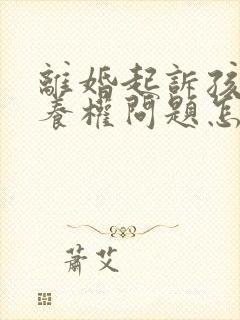 離婚起訴孩
養權問題怎
蕭艾